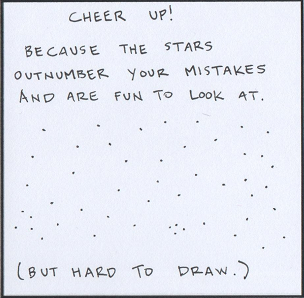 CHEER UP!
BECAUSE THE STARS
OUTNUMBER YOUR MISTAKES
AND ARE FUN TO LOOK AT.
(BUT HARD TO DRAW.)